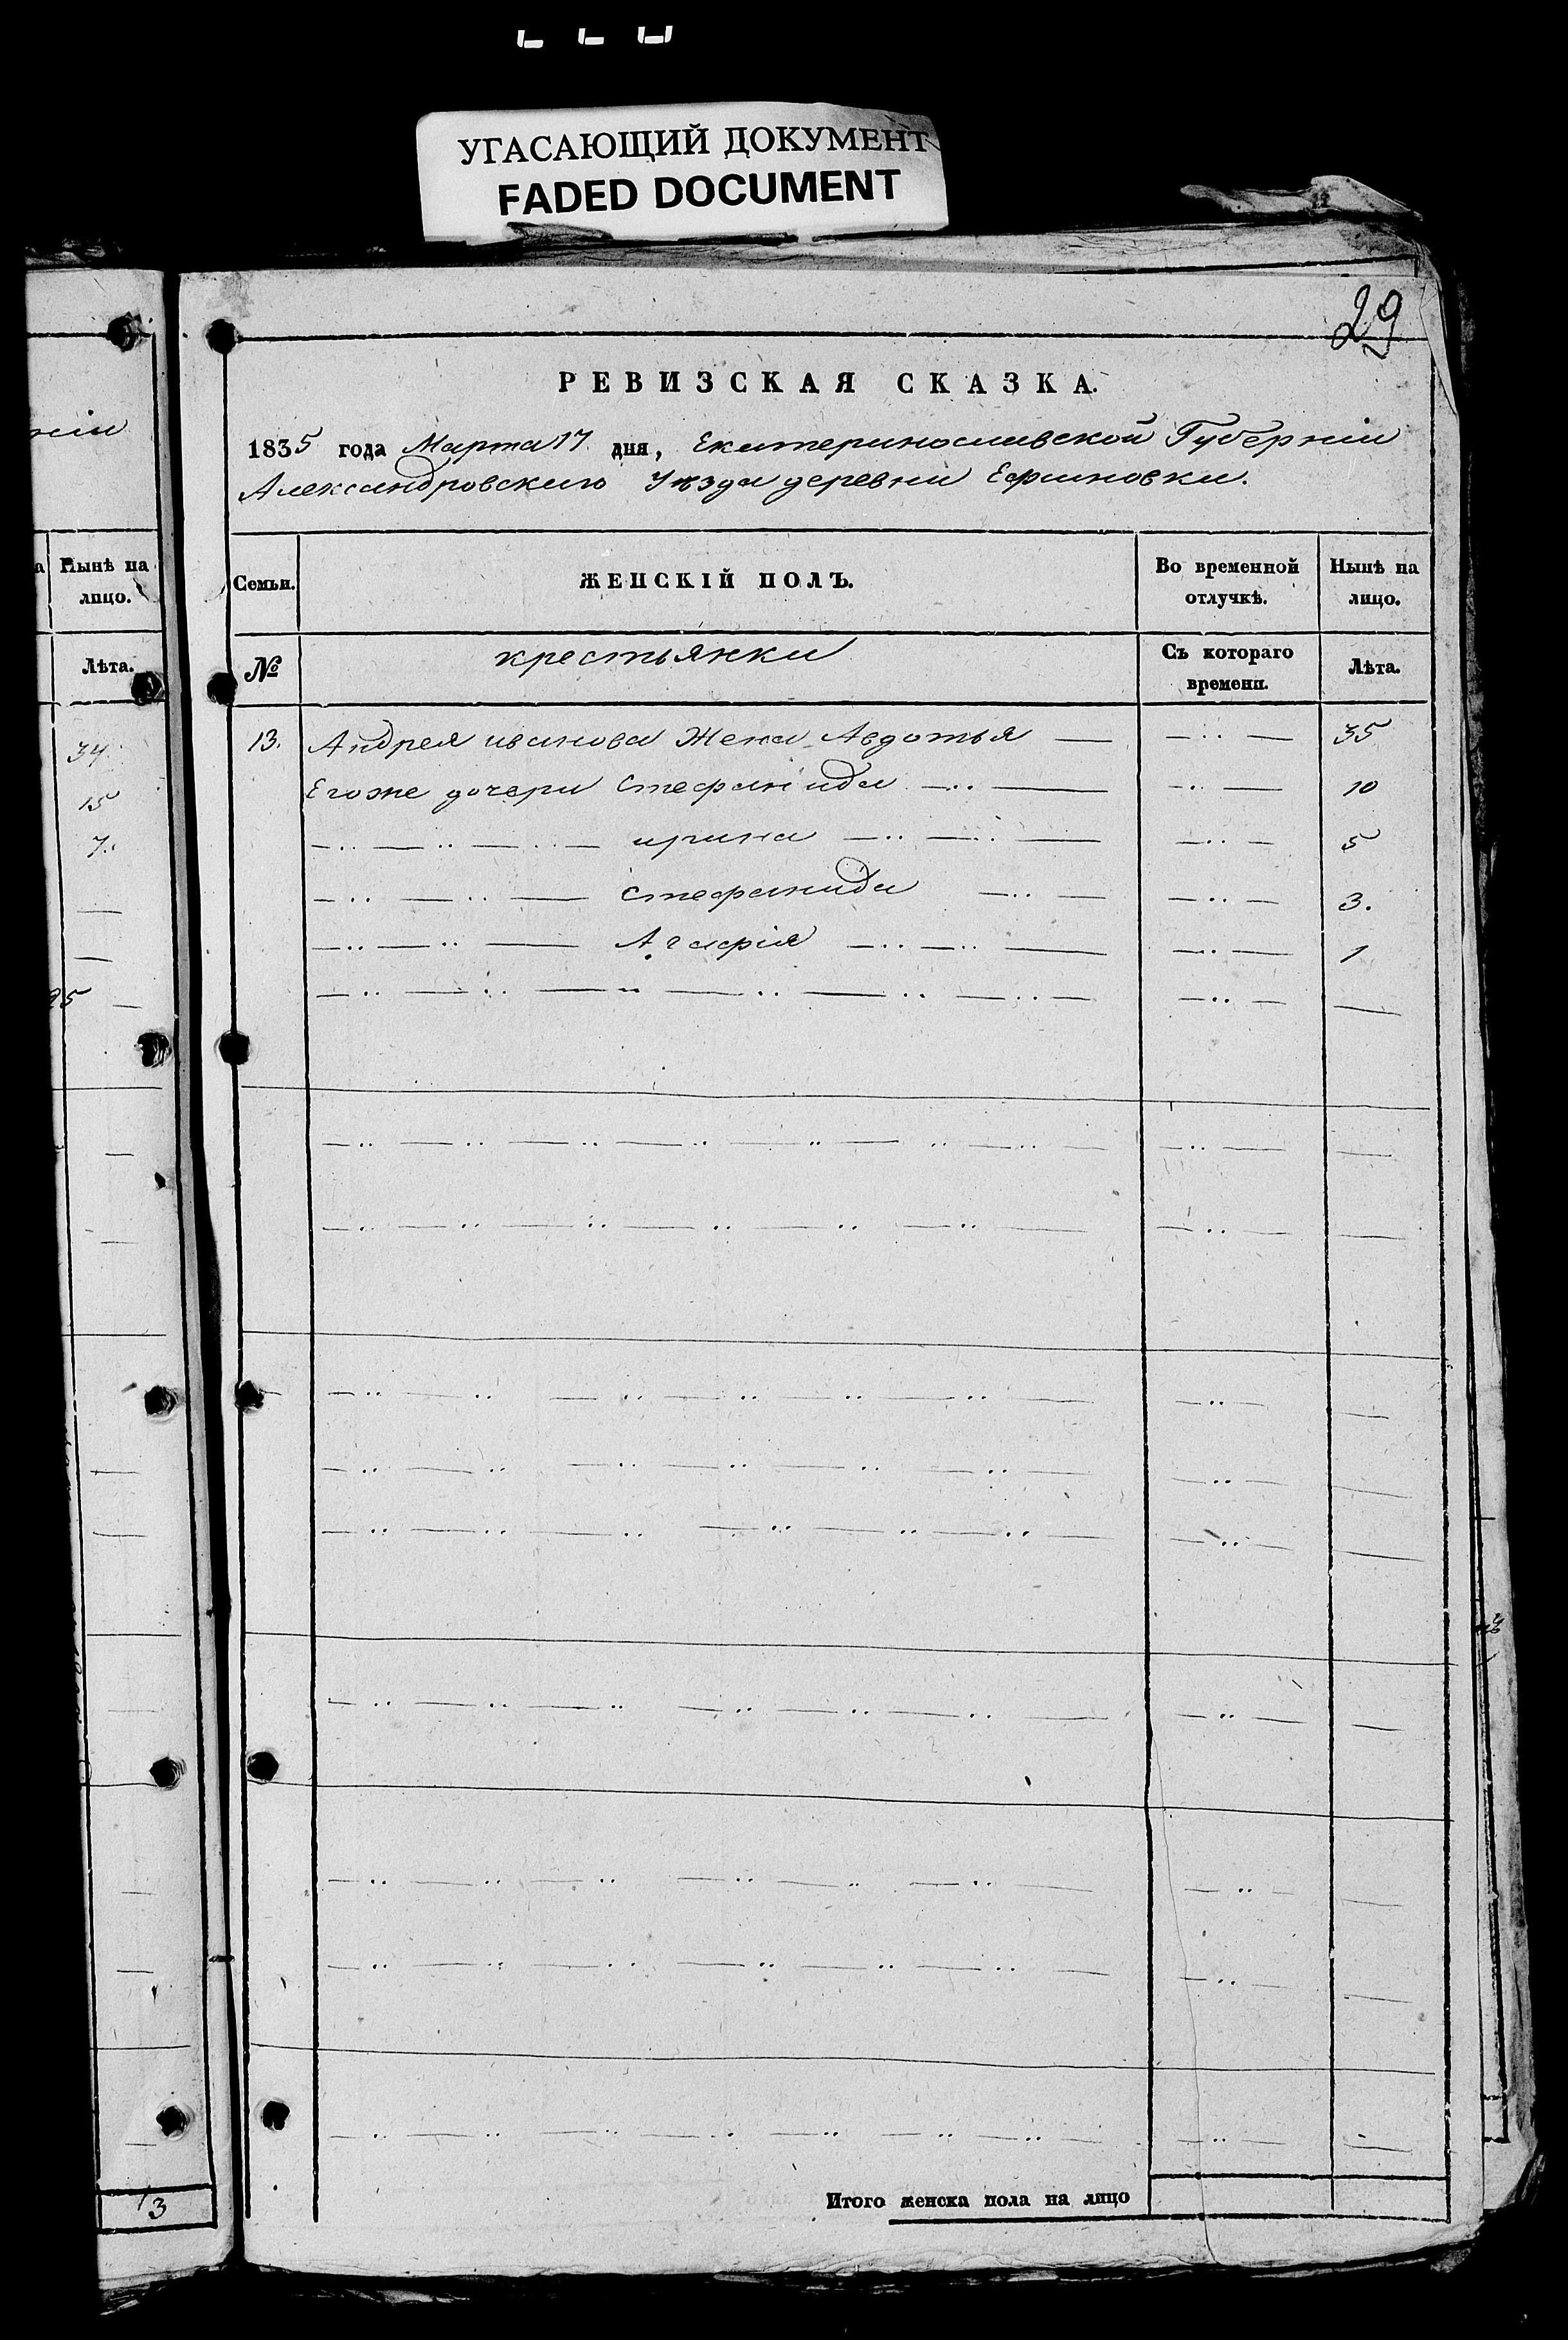 УГАСАЮЩИЙ ДОКУМЕНТ
FADED DOCUMENT
29
РЕВИЗСКАЯ СКАЗКА.
1835 года Марта 17 дня, Екатеринославской Губерніи
Александровского Уѣзда деревни Ефимовки.
Семьи. ЖЕНСКІЙ ПОЛЪ. Во временной отлучкѣ. Нынѣ на лицо.
№ крестьянки Съ котораго времени. Лѣта.
13. Андрея иванова Жена Авдотья 35
Егоже дочери Стефанида 10
ирина 5
Стефанида 3.
Агафія 1
Итого женска пола на лицо
нiи
а Нынѣ на
лицо.
Лѣта.
34
15
7.
25
13